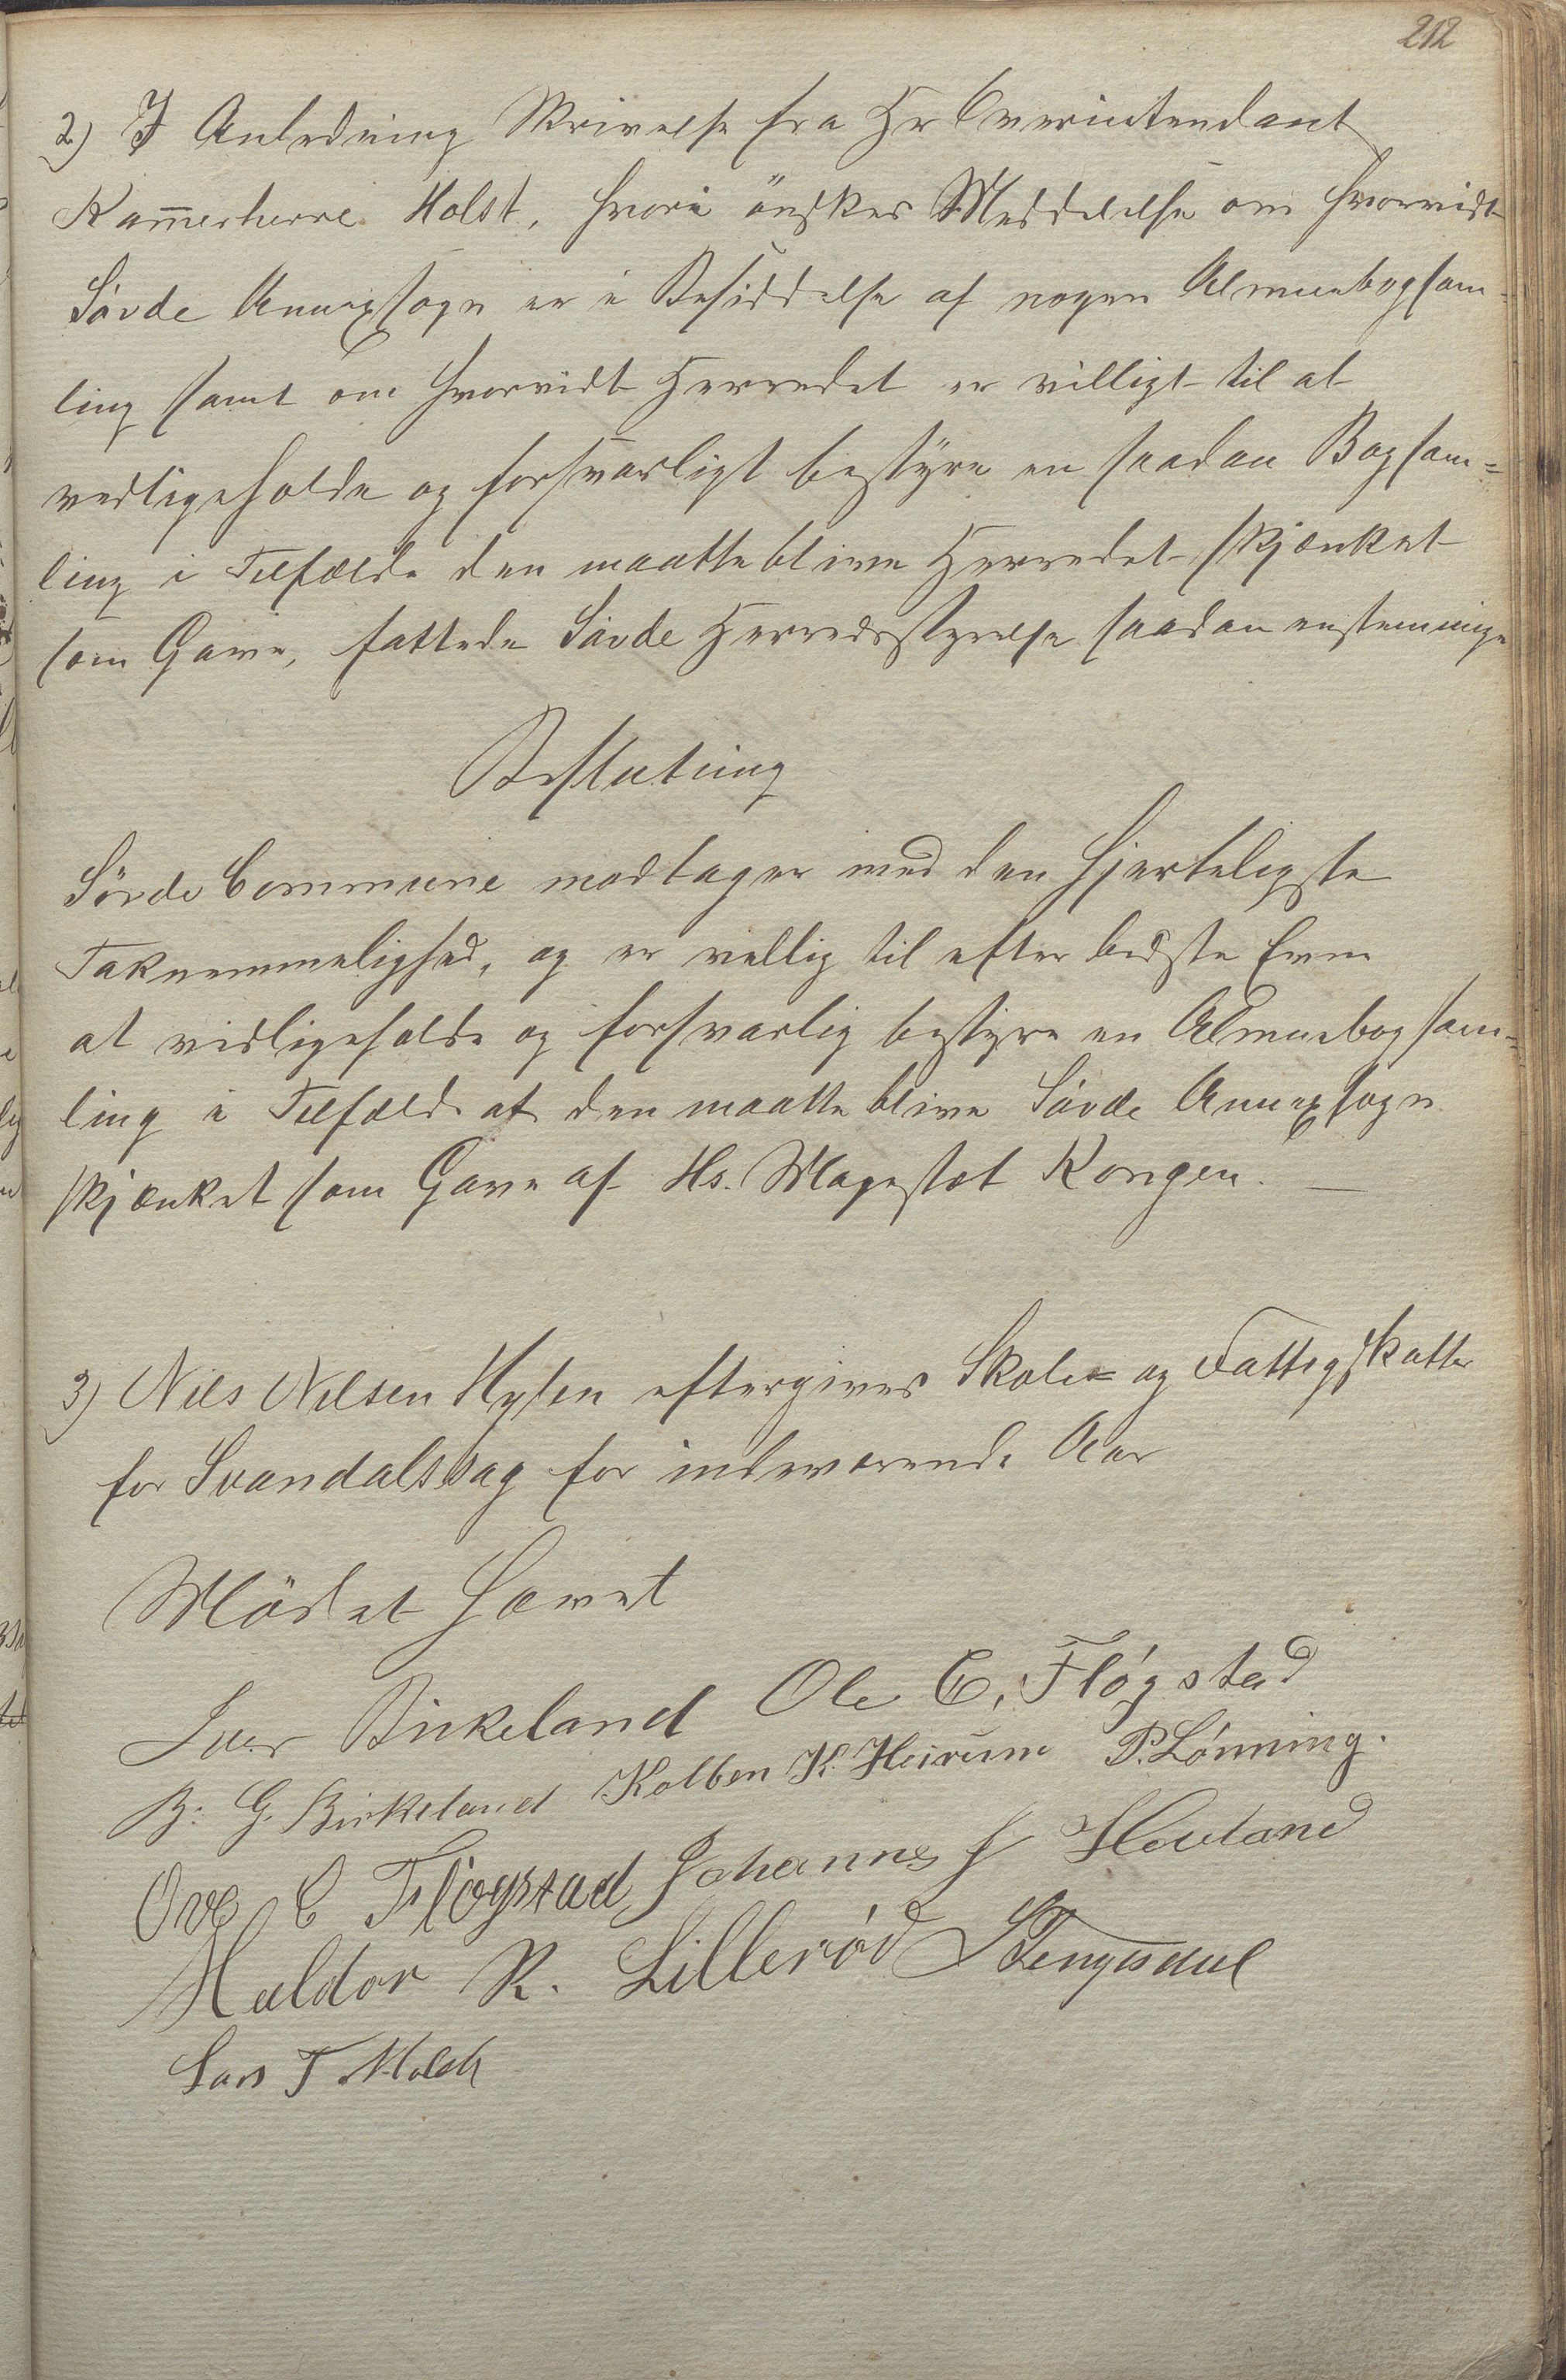 212
2) I Anledning Skrivelse fra Hr Overintendant
Kam̄erherre Holst, hvori önskes Meddelelse om hvorvidt
Søvde Annexsogn er i Besiddelse af nogen Almuebogsam-
ling samt om hvorvidt Herredet er villigt til at
vedligeholde og forsvarligt bestyre en saadan Bogsam=
ling i Tilfælde den maatte blive Herredet skjænket
som Gave, fattede Søvde Herredsstyrelse saadan enstemmige
Beslutning
Sövde Commune modtager med den hjerteligste
Taknemmelighed, og er vellig til efter bedste Evne
at vidligeholde og forsvarlig bestyre en Almuebogsam=
ling i Tilfælde at den maatte blive Søvde Annexsogn
skjænket som Gave af Hs. Magestæt Kongen. —
3) Nils Nilsen Hylen eftergives Skole= og Fattigskatter
for Svandalssag for indeværende Aar
Mödet hævet
Iver Birkeland Ole C. Fløgstad
B. G. Birkeland Kolben K. Heirum P. Lønning.
Ove C Fløgstad Johannes J Hovland
Haldor R. Lillerød STengesdal
Lars T Molch